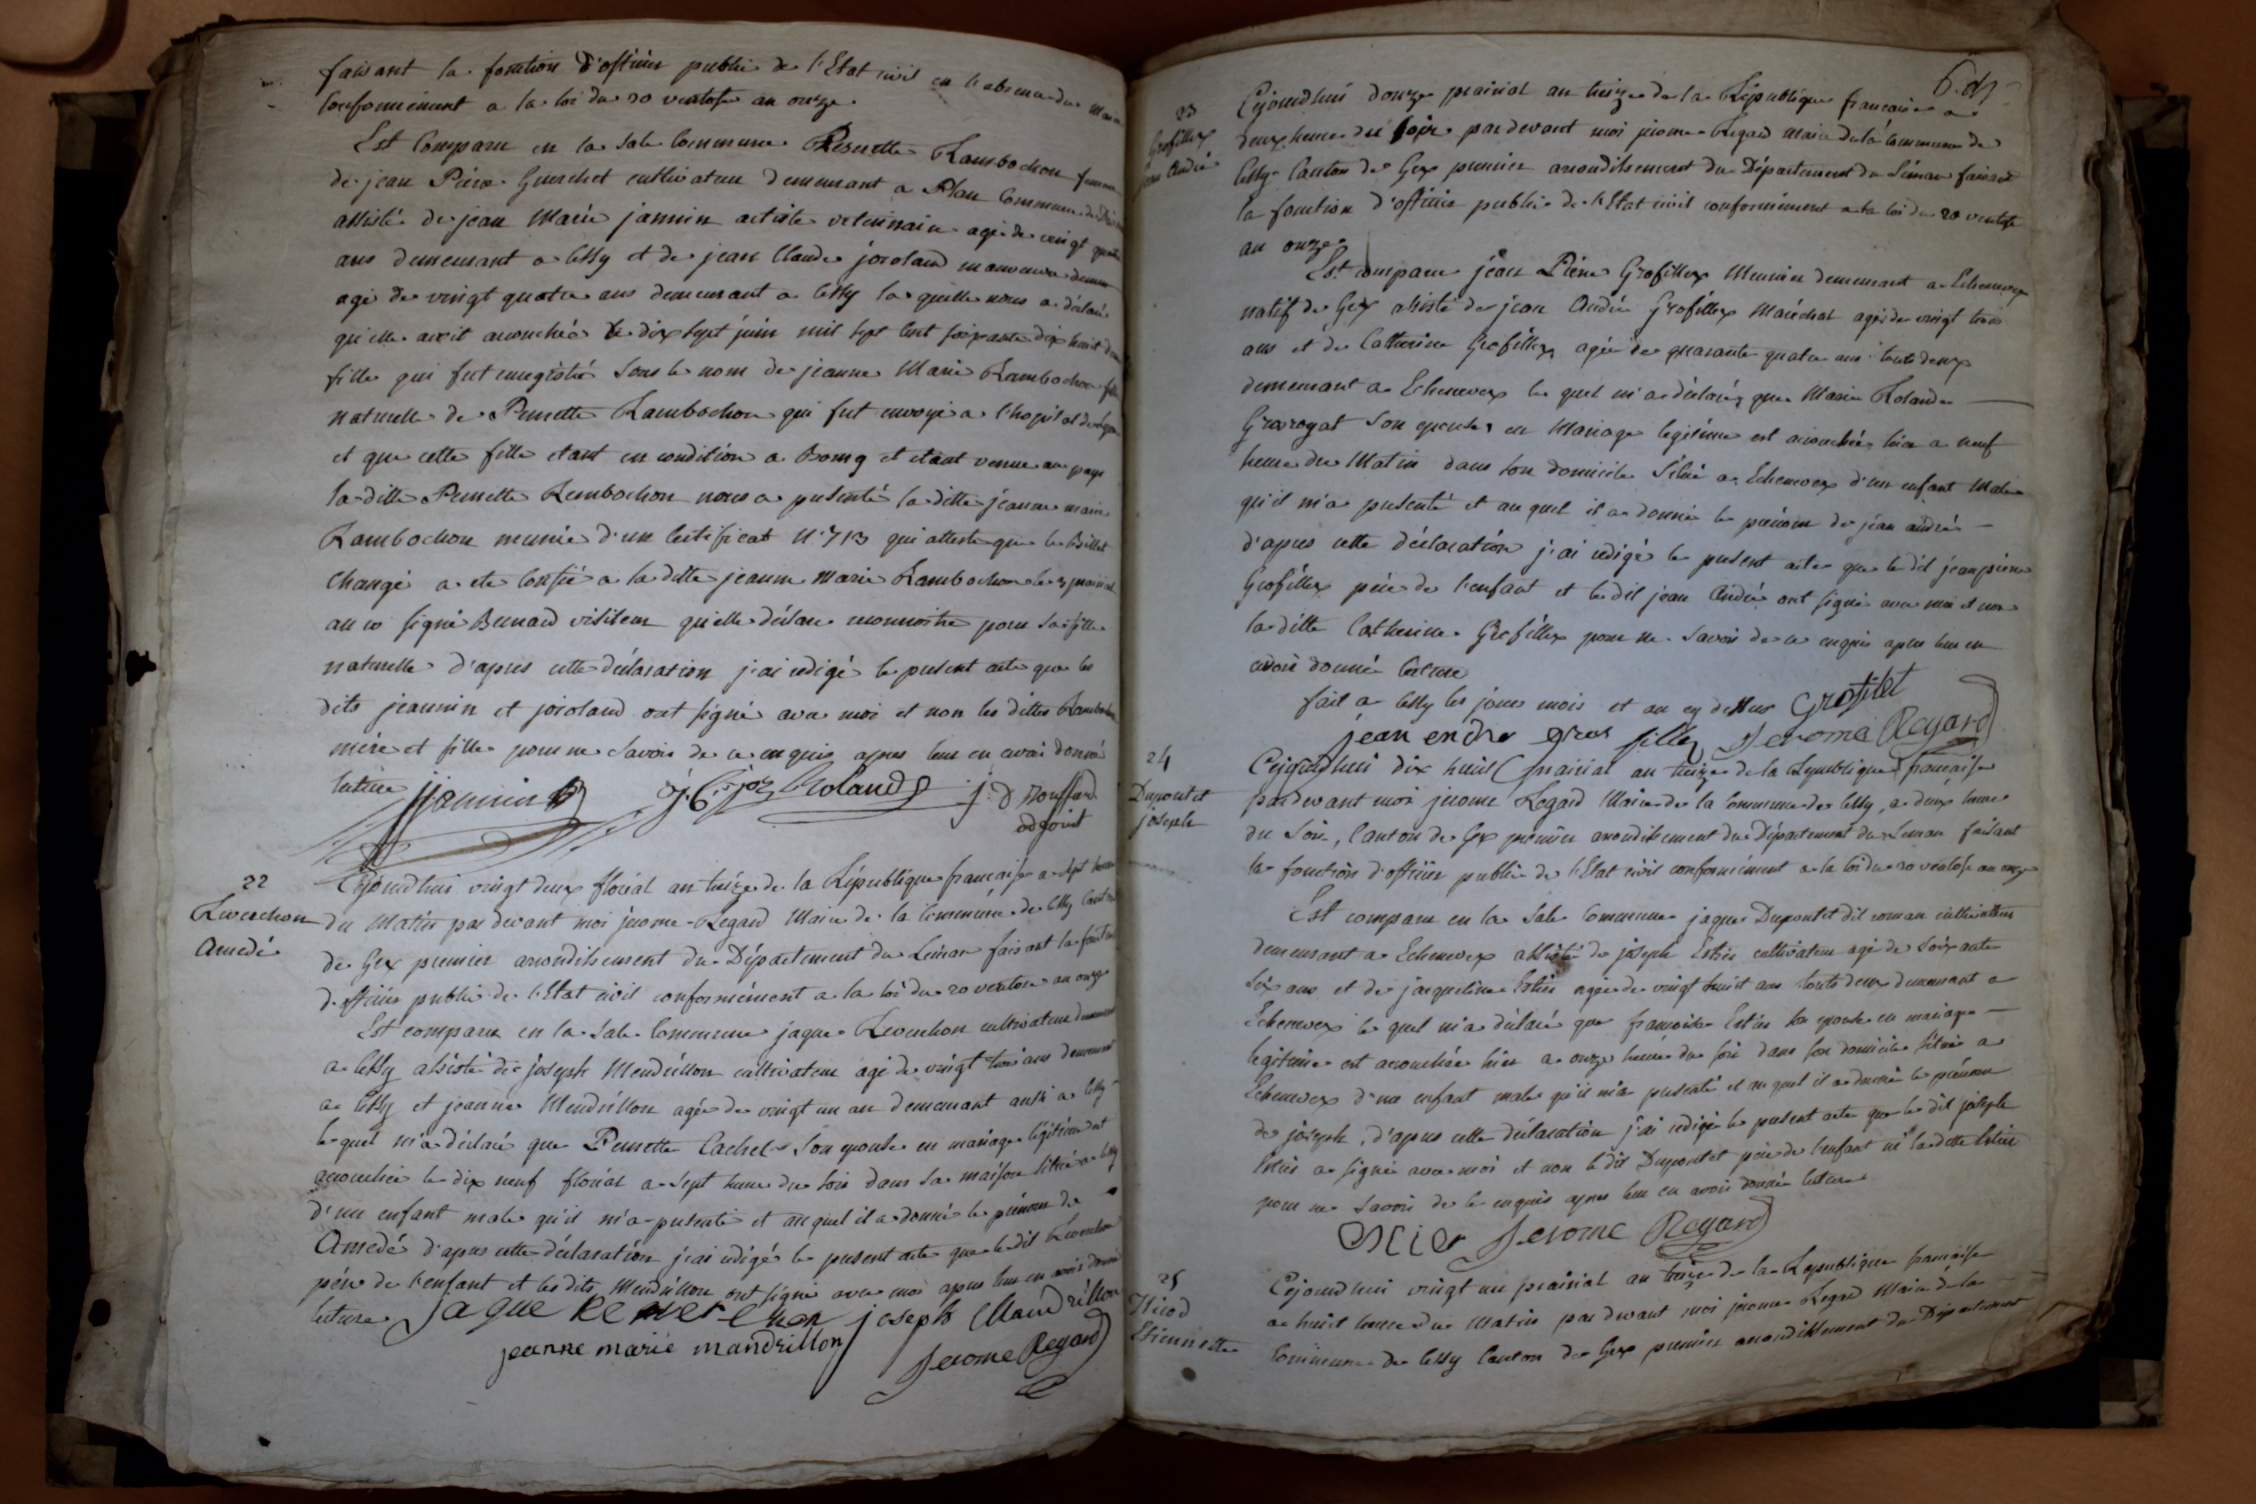 faisant la fonction d'officier public de l'Etat civil en l'absence du maire
conformement a la loi du 20 ventose an onze.
Est Comparu en la sale commune Pernette Rambochon femme
de jean Piere Guerchet cultivateur demeurant a Plan Commune de
assisté de jean Marie jannin artiste veterinaire agé de vingt quatre
ans demeurant a Cessy et de jean Claude joroland
agé de vingt quatre ans demeurant a Cessy la quelle nous a déclaré
qu'elle avoit accouchée le dix sept juin mil sept cent soixante dix huit d'une
fille qui fut enregistré sous le nom de jeanne Marie Rambochon fille
naturelle de Pernette Rambochon qui fut envoyé a l'hopital de
et que cette fille etant en condition a Bourg et etant venue au pays
la ditte Pernette Rambochon nous a présenté la ditte jeanne marie
Rambochon munie d'un Certificat N° 713 qui atteste que le Billet
Changé a ete confié a la ditte jeanne Marie Rambochon le 3 prairial
an 10 signé Bernard visiteur qu'elle déclare reconnoitre pour sa fille
naturelle d'apres cette déclaration j'ai redigé le présent acte que les
dits jeannin et joroland ont signé avec moi et non les dittes Rambochon
mére et fille pour ne savoir de ce enquis apres leur en avoir donné
lecture
jjannin
J. C. joz Roland
j. D Rouffard
adjoint
22
Reverchon
Amedé
Cejourdhui vingt deux floréal an treize de la République francaise a sept heures
du Matin par devant moi jerome Regard Maire de la Commune de Cessy Canton
de Gex premier arrondissement du Département du Léman faisant la fonction
d'officier public de l'Etat civil conformément a la loi du 20 ventose an onze
Est comparu en la sale Commune jaque Reverchon cultivateur demeurant
a Cessy assisté de joseph Mendrillon cultivateur agé de vingt trois ans demeurant
a Cessy et jeanne Mendrillon agée de vingt un an demeurant aussi a Cessy
le quel m'a déclaré que Pernette Cachet son epouse en mariage légitime est
accouchée le dix neuf floréal a sept heure du soir dans sa maison située a Cessy
d'un enfant male qu'il m'a présenté et au quel il a donné le prénom de
Amedé d'apres cette déclaration j'ai redigé le present acte que le dit Reverchon
pére de l'enfant et les dits Mendrillon ont signé avec moi apres leur en avoir donné
lecture
jaque Reverchon joseph Mandrillon
jeanne marie mandrillon
Jerome Regard
23
Grosfillex
jean André
Cejourdhui douze prairial an treize de la République francaise a
deux heures du soir par devant moi jerome Regard Maire de la commune de
Cessy Canton de Gex premier arrondissement du Département du Léman faisant
la fonction d'officier public de l'Etat civil conformément a la loi du 20 ventose
an onze
Est comparu jean Piere Grosfillex Meunier demeurant a Echenevex
natif de Gex assisté de jean André Grosfillex Maréchal agé de vingt trois
ans et de Catherine Grosfillex agée de quarante quatre ans touts deux
demeurant a Echenevex le quel m'a déclaré que Marie Rolande
Gravoyat son epouse en Mariage legitime est accouchée hier a neuf
heure du Matin dans son domicile situé a Echenevex d'un enfant Male
qu'il m'a présenté et au quel il a donné le prénom de jean andré
d'apres cette déclaration j'ai redigé le present acte que le dit jean piere
Grosfillex pére de l'enfant et le dit jean André ont signé avec moi et non
la ditte Catherine Grosfillex pour ne savoir de ce enquis apres leur en
avoir donné lecture
fait a Cessy les jours mois et an cy dessus Grosfilet
jean endre gros fillex Jerome Regard
24
Dupontet
joseph
Cejourdhui dix huit prairial an treize de la République francaise
par devant moi jerome Regard Maire de la Commune de Cessy, a deux heures
du soir, Canton de Gex premier arrondissement du Département du Léman faisant
la fonction d'officier public de l'Etat civil conformément a la loi du 20 ventose an onze
Est comparu en la sale commune jaque Dupontet dit roman cultivateur
demeurant a Echenevex assisté de joseph Estier cultivateur agé de soixante
six ans et de jacqueline Estier agée de vingt huit ans touts deux demeurant a
Echenevex le quel m'a déclaré que francoise Estier son epouse en mariage
legitime est accouchée hier a onze heure du soir dans son domicile situé a
Echenevex d'un enfant male qu'il m'a présenté et au quel il a donné le prénom
de joseph, d'apres cette déclaration j'ai redigé le present acte que le dit joseph
Estier a signé avec moi et non le dit Dupontet pére de l'enfant ni la ditte Estier
pour ne savoir de ce enquis apres leur en avoir donné lecture
Jerome Regard
25
Nicod
Etiennette
Cejourdhui vingt un prairial an treize de la République francaise
a huit heure du Matin par devant moi jerome Regard Maire de la
Commune de Cessy Canton de Gex premier arrondissement du Département